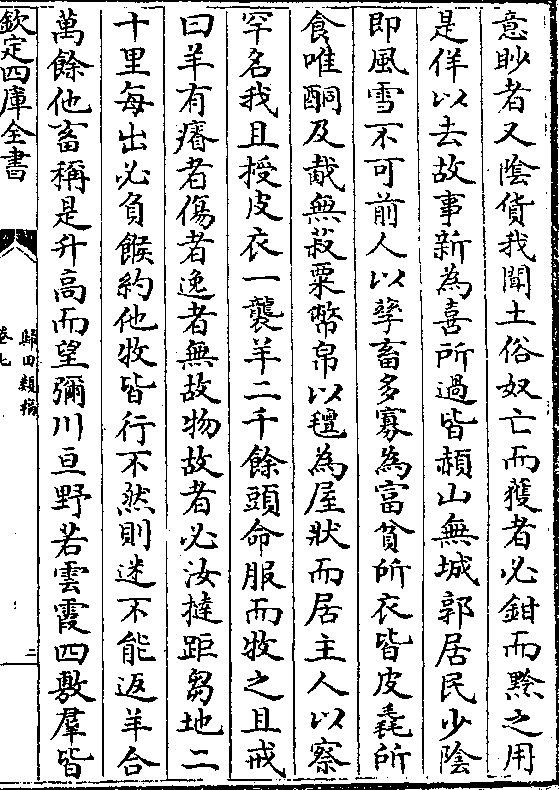 意眇者又陰貨我聞土俗奴亡而獲者必鉗而黥之用
是佯以去故事新為喜所過皆赬山無城郭居民少陰
即風雪不可前人以孳畜多寡為富貧所衣皆皮毳所
食唯酮及胾無菽粟幣帛以氊為屋狀而居主人以察
罕名我且授皮衣一襲羊二千餘頭命服而牧之且戒
曰羊有瘠者傷者逸者無故物故者必汝撻距芻地二
十里每出必負餱約他牧皆行不然則迷不能返羊合
萬餘他畜稱是升高而望彌川亘野若雲霞四敷羣皆
欽定四庫全書
歸田類稿
卷七
三